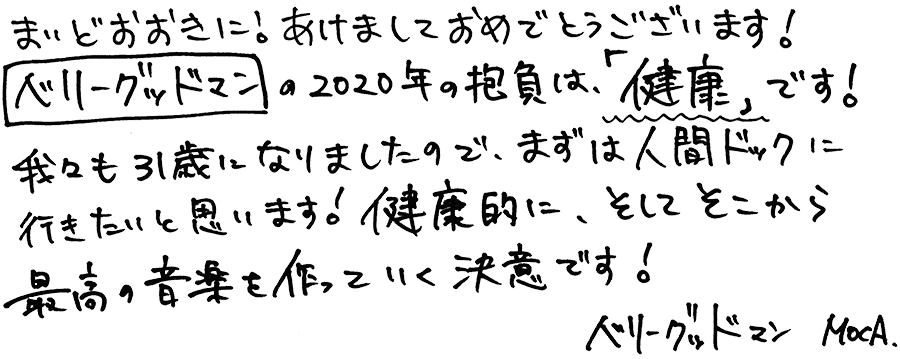 まいどおおきに！あけましておめでとうございます！
ベリーグッドマンの2020年の抱負は、「健康」です！
我々も31歳になりましたので、まずは人間ドックに
行きたいと思います！健康的に、そしてそこから
最高の音楽を作っていく決意です！
ベリーグッドマン MOCA.